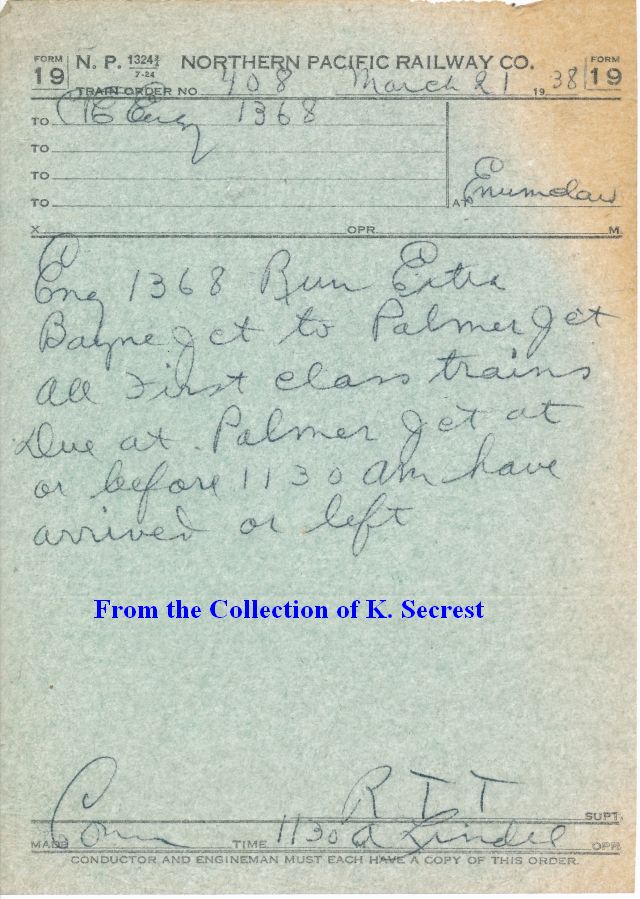 FORM 19 N. P. 1324 3/4 7-24 NORTHERN PACIFIC RAILWAY CO. FORM 19
TRAIN ORDER NO. 408 March 21 1938
TO C&E Eng 1368
TO
TO
TO AT Enumclaw
X OPR. M
Eng 1368 Run Extra
Bayne Jct to Palmer Jct
All First class trains
Due at Palmer Jct at
or before 1130 am have
arrived or left
From the Collection of K. Secrest
R T T SUPT.
MADE Com TIME 1130 a Lindel OPR
CONDUCTOR AND ENGINEMAN MUST EACH HAVE A COPY OF THIS ORDER.